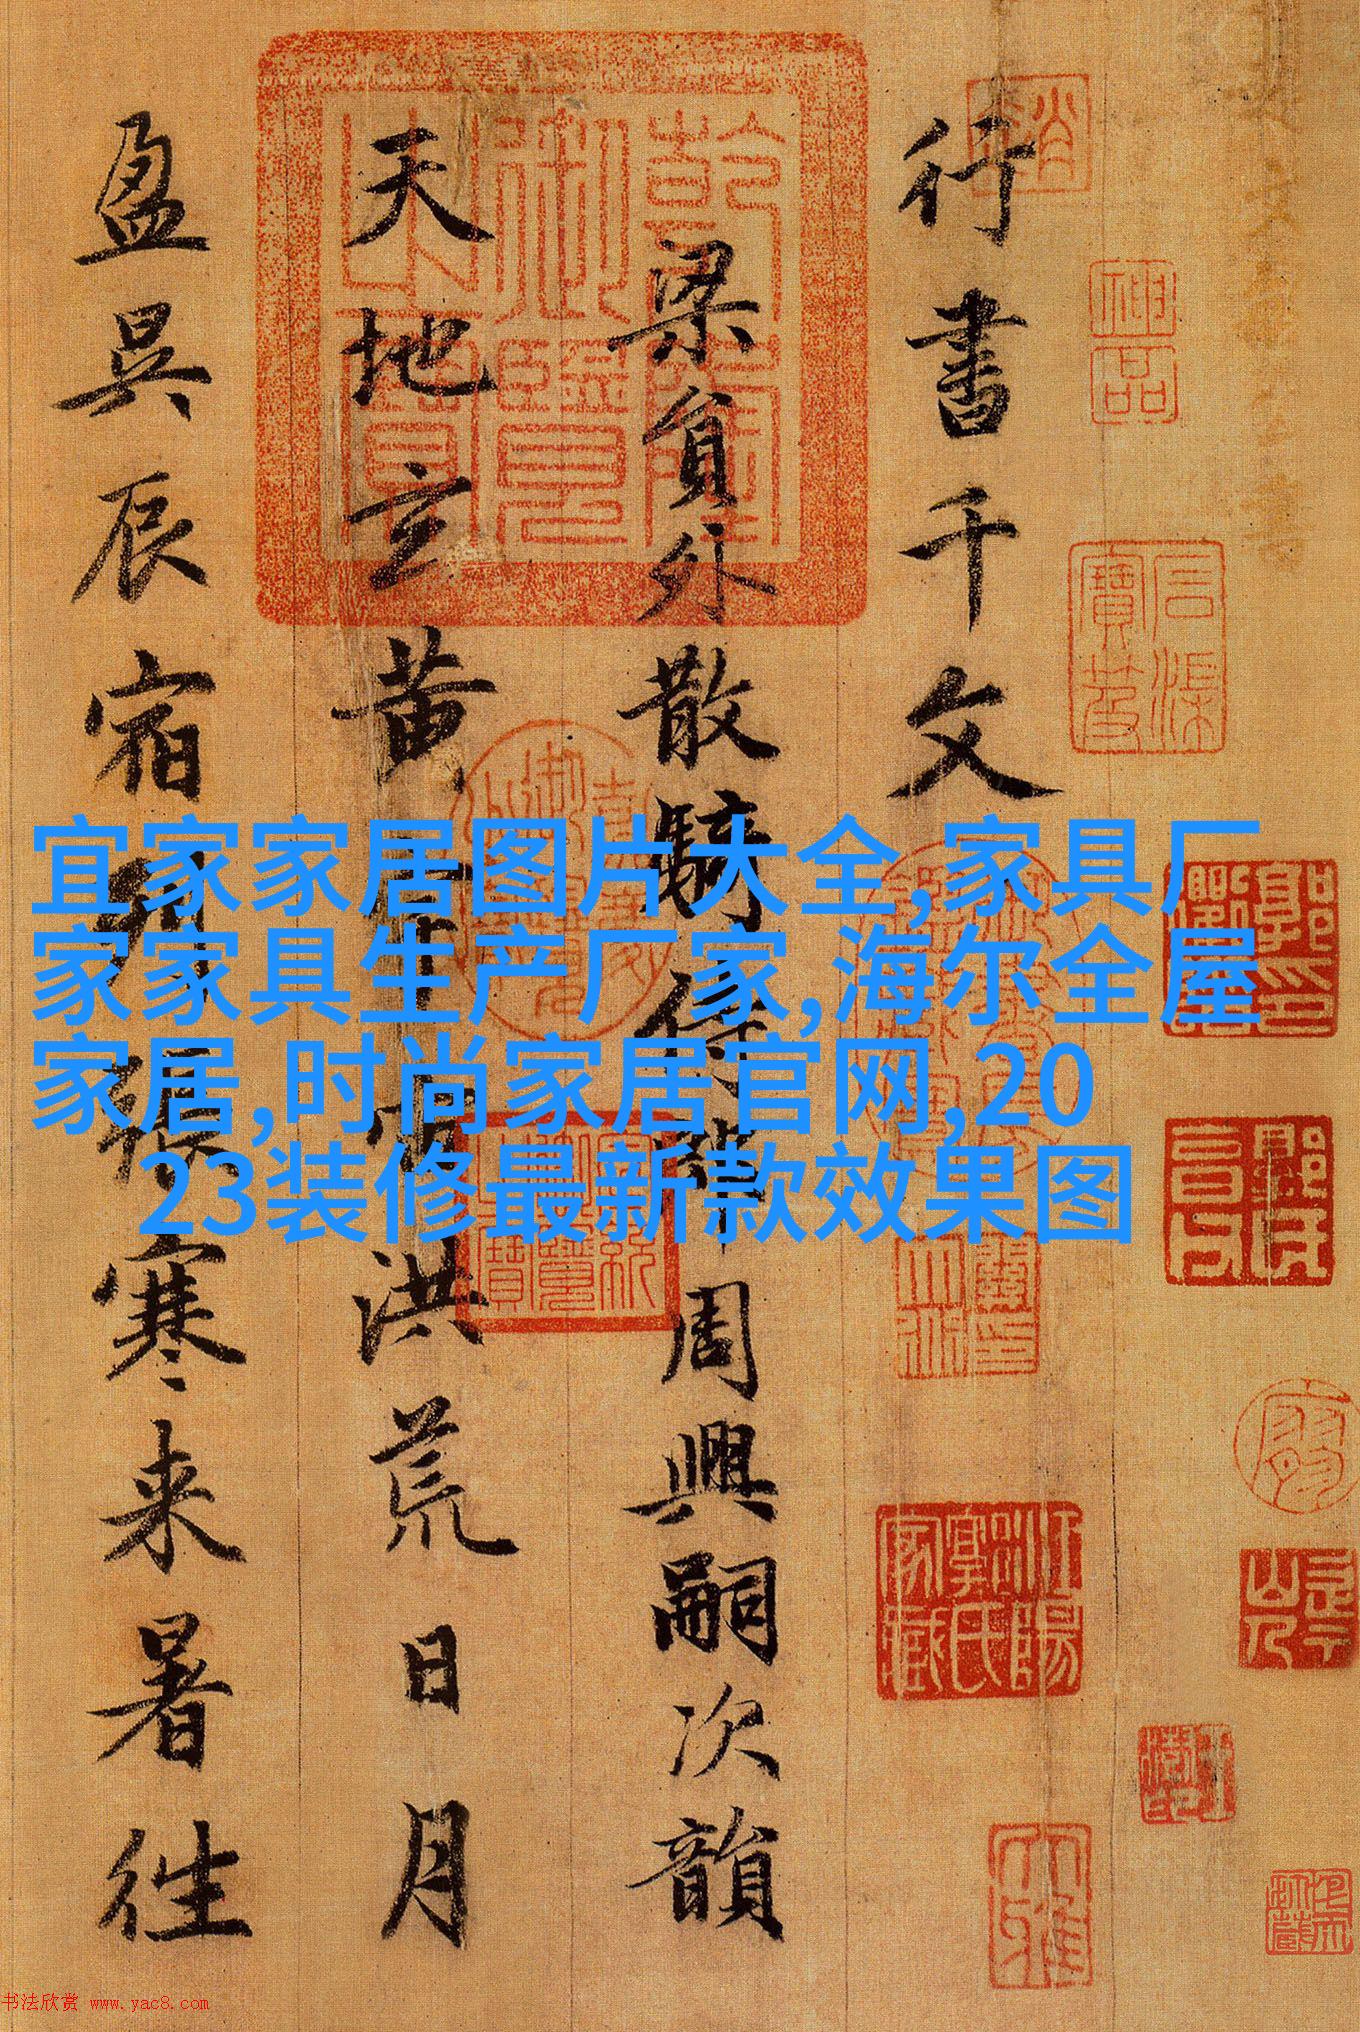 行書千文
梁貟外散騎侍郎周興嗣次韻
天地玄黄宇宙洪荒日月
盈昃辰宿列張寒来暑往
乾隆御覽之寶
神品
宜家家居图片大全,家具厂
家家具生产厂家,海尔全屋
家居,时尚家居官网,20
23装修最新款效果图
书法欣赏 www.yac8.com